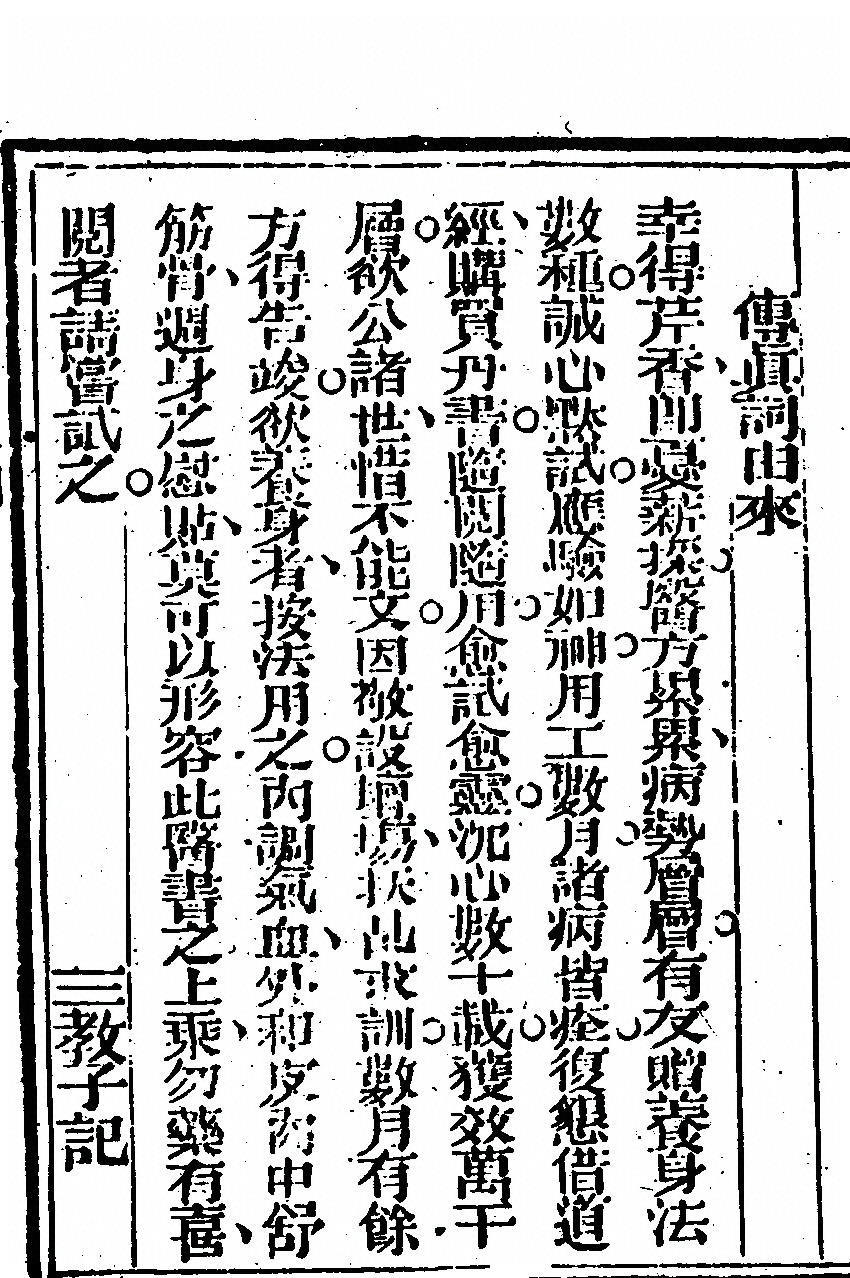 傳眞詞由來
幸得芹香即憂薪採醫方累累病勢層層有友贈養身法
數種誠心黙試應驗如神用工數月諸病皆痊復懇借道
經購買丹書隨閱隨用愈試愈靈沈心數十載獲效萬千
層欲公諸世惜不能文因敬設壇塲扶乩求訓數月有餘
方得告竣欲養身者按法用之內調氣血外和皮肉中舒
筋骨週身之慰貼莫可以形容此醫書之上乘勿藥有喜
閱者請嘗試之
三教子記